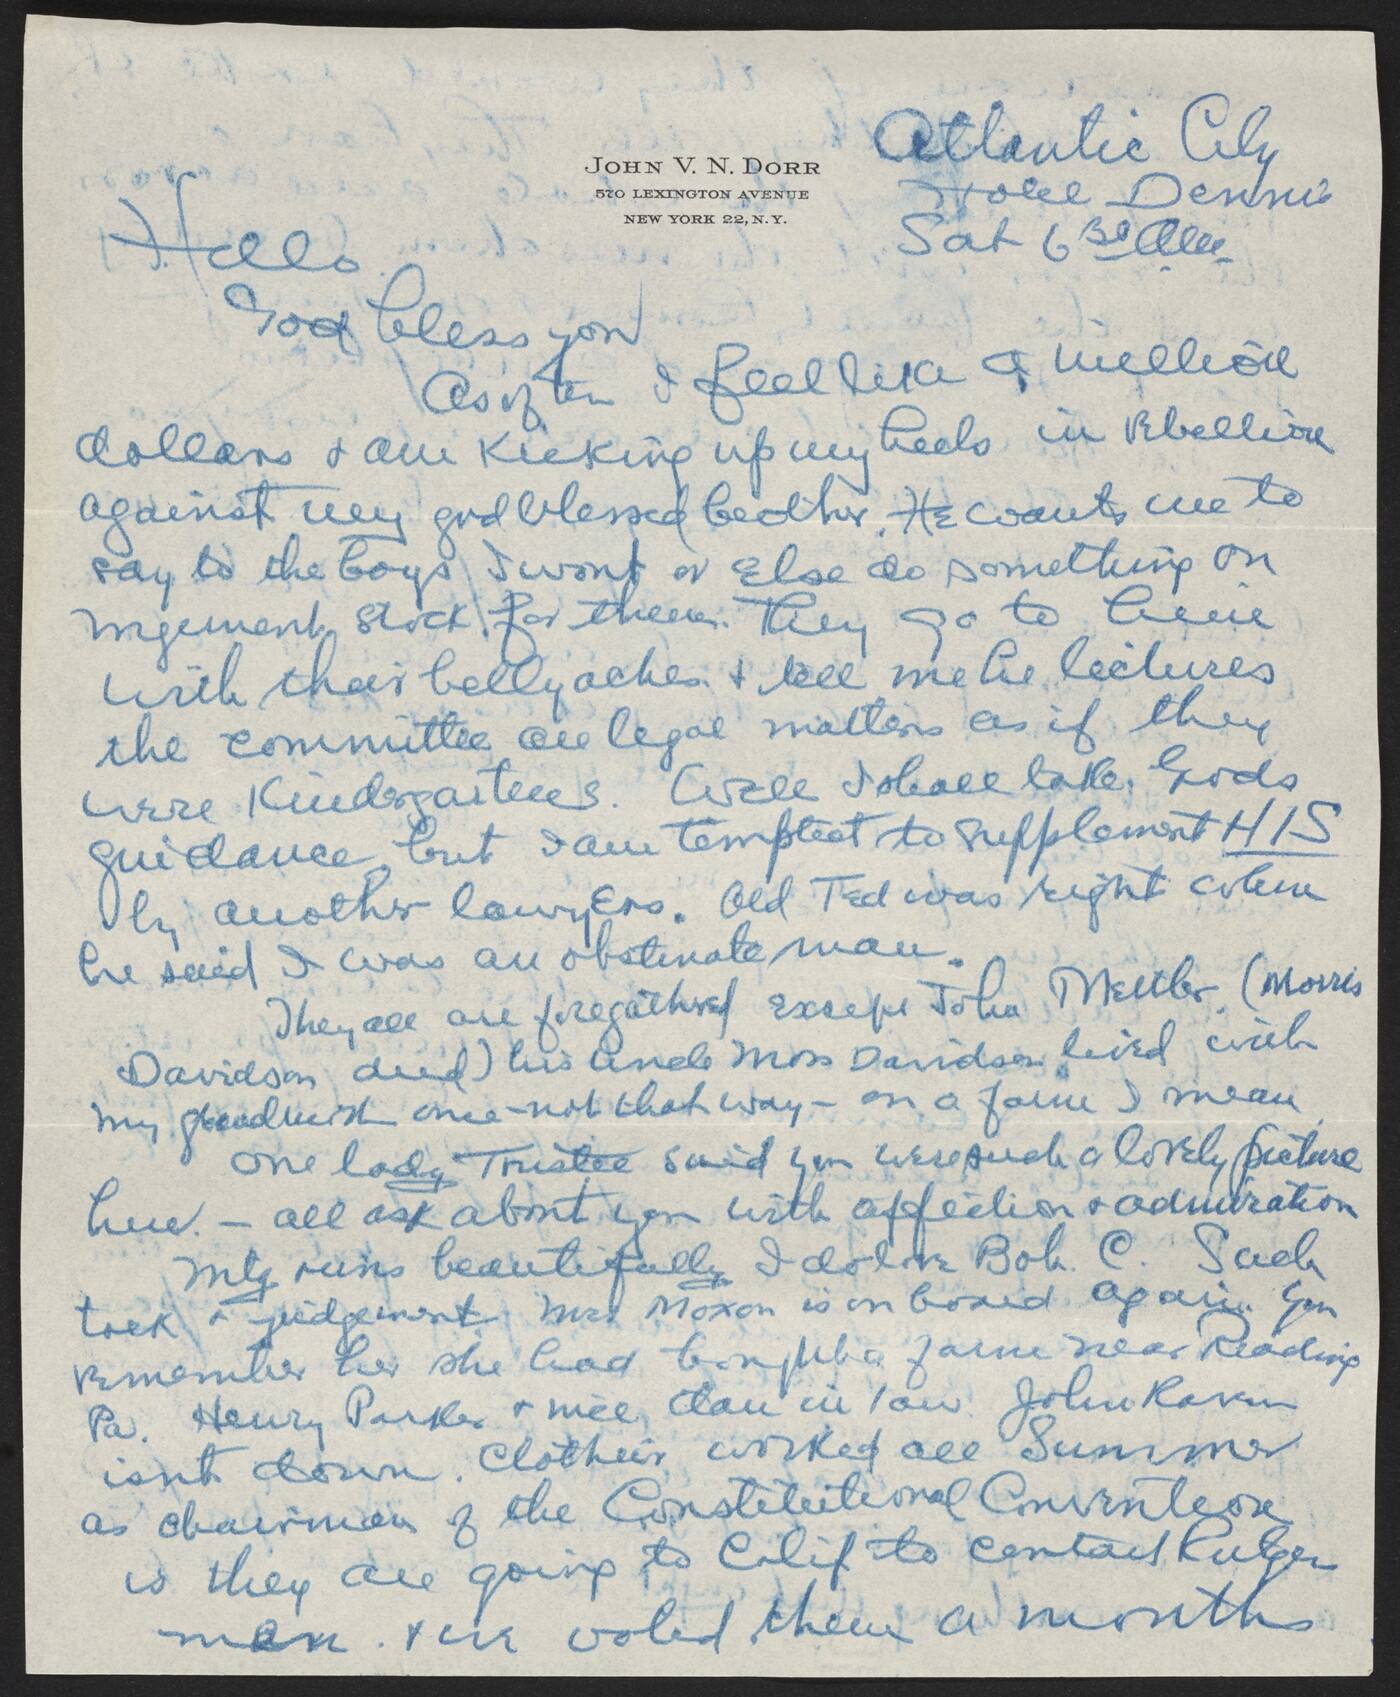 JOHN V. N. DORR
570 LEXINGTON AVENUE
NEW YORK 22, N.Y.
Atlantic City
Hotel Dennis
Sat 6 30 AM
Hello
God bless you
As often I feel like a million
dollars & am kicking up my heels in rebellion
against my god blessed brother. He wants me to
say to the boys I wont or Else do something on
mgement stock for them. They go to him
with their belly aches & tell me he lectures
the committee on legal matters as if they
were Kindergartens. Well I shall take Gods
guidance, but I am tempted to supplement HIS
by another lawyErs. Old Ted was right when
he said I was an obstinate man.
They all are foregathered except John Mettler (Morris
Davidson died) his uncle Moss Davidson lived with
my once - not that way - on a farm I mean
One lady Trustee said you were such a lovely picture
here. - all ask about you with affection & admiration
Mtg runs beautifully I do love Bob C. Such
tack & judgement Mrs Moxon is on board again. You
remember her she had bought a farm near Reading
Pa. Henry Parker & nice dau in law John
isnt down. Clothier worked all Summer
as chairman of the Constitutional Convention
is they are going to Calif to contact Rutgers
men. & we voted them a months